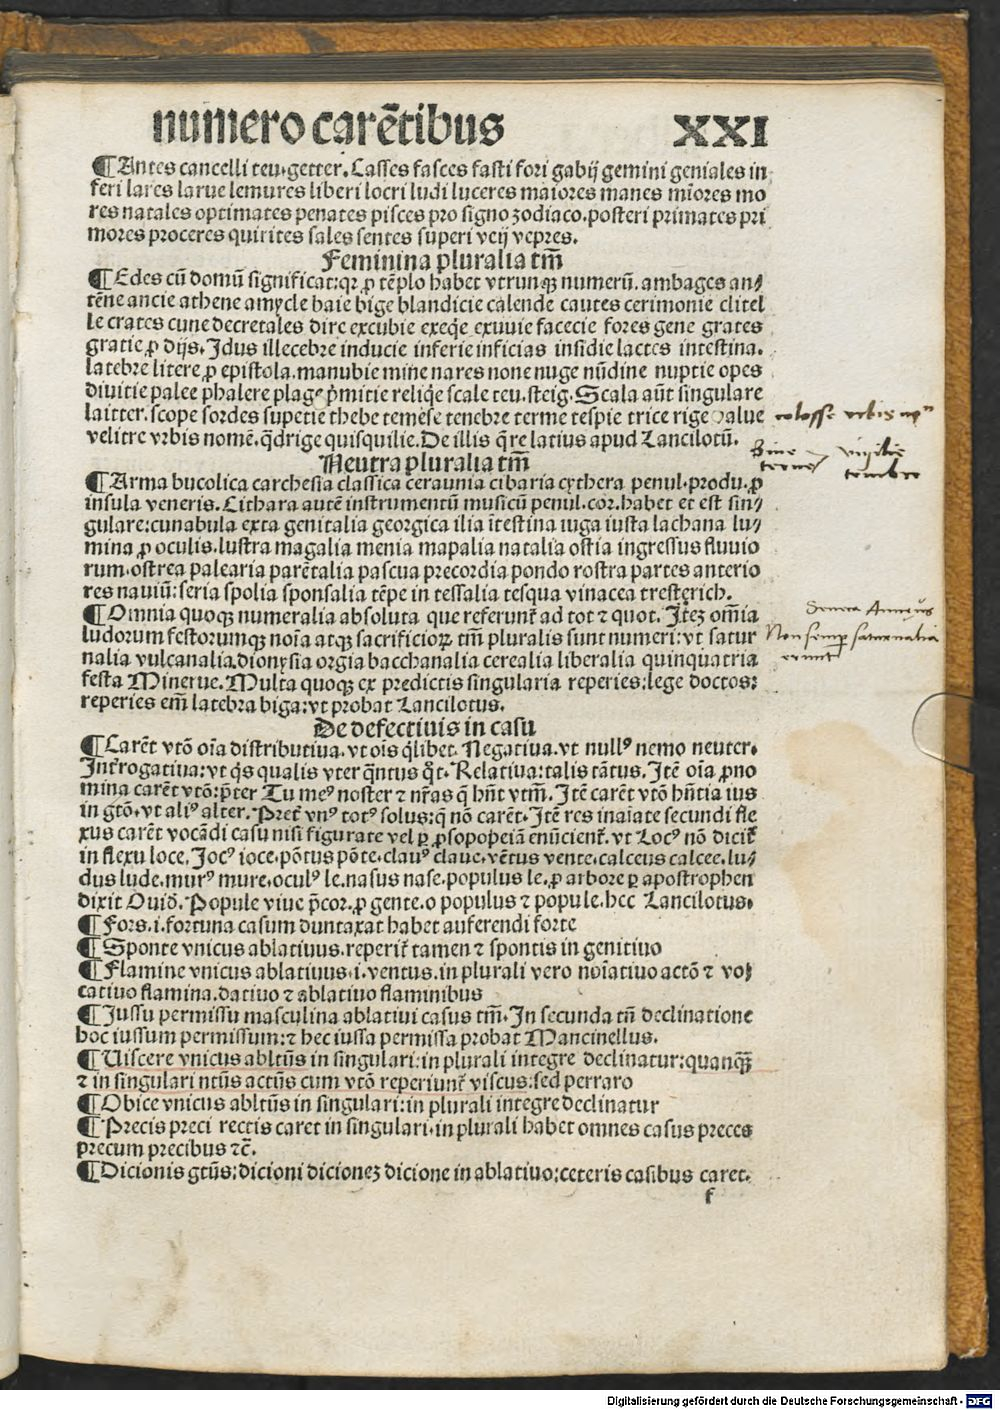 numero carētibus XXI
¶Antes cancelli teu.getter. Casses fasces fasti fori gabij gemini geniales in
feri lares larue lemures liberi locri ludi luceres maiores manes mīores mo
res natales optimates penates pisces pro signo zodiaco.posteri primates pri
mores proceres quirites sales sentes superi veij vepres.
Feminina pluralia tm̄
¶Edes cū domū significat:qꝛ ꝓ tēplo habet vtrunqꝫ numerū. ambages an/
tēne ancie athene amycle baie bige blandicie calende cautes cerimonie clitel
le crates cune decretales dire excubie exeq̄e exuuie facecie fores gene grates
gratie ꝓ dijs. Idus illecebre inducie inferie inficias insidie lactes intestina.
latebre litere ꝓ epistola.manubie mine nares none nuge nūdine nuptie opes
diuitie palee phalere plage p̄mitie reliq̄e scale teu.steig. Scala aūt singulare
laitter.scope sordes supetie thebe temese tenebre terme tespie trice rige value
velitre vrbis nomē.q̄drige quisquilie.De illis q̄re latius apud Lancilotū.
colosse vrbis
Bine
terne
vigilie
Neutra pluralia tm̄
¶Arma bucolica carchesia classica ceraunia cibaria cythera penul.produ.ꝓ
insula veneris. Cithara autē instrumentū musicū penul.cor.habet et est sin/
gulare:cunabula exta genitalia georgica ilia ītestina iuga iusta lachana lu/
mina ꝓ oculis.lustra magalia menia mapalia natalia ostia ingressus fluuio
rum.ostrea palearia parētalia pascua precordia pondo rostra partes anterio
res nauiū:seria spolia sponsalia tēpe in tessalia tesqua vinacea tresterich.
¶Omnia quoqꝫ numeralia absoluta que referunt̄ ad tot ⁊ quot. Itēꝫ om̄ia
ludorum festorumqꝫ noīa atqꝫ sacrificioꝝ tm̄ pluralis sunt numeri:vt satur
nalia vulcanalia.dionysia orgia bacchanalia cerealia liberalia quinquatria
festa Minerue.Multa quoqꝫ ex predictis singularia reperies:lege doctos:
reperies em̄ latebra biga:vt probat Lancilotus.
Seneca
Non semꝑ saturnalia
erunt
De defectiuis in casu
¶Carēt vtō oīa distributiua.vt oīs q̄libet. Negatiua.vt nullꝰ nemo neuter.
Int̄rogatiua:vt q̄s qualis vter q̄ntus q̄t. Relatiua:talis tātus. Itē oīa ꝓno
mina carēt vtō:p̄ter Tu meꝰ noster ⁊ nr̄as q̄ hn̄t vtm̄. Itē carēt vtō hn̄tia ius
in gtō.vt aliꝰ alter. Pret̄ vnꝰ totꝰ solus:q̄ nō carēt. Itē res inaīate secundi fle
xus carēt vocādi casu nisi figurate vel ꝑ ꝓsopopeiā enūcient̄. vt Locꝰ nō dicit̄
in flexu loce. Jocꝰ ioce.pōtus pōte.clauꝰ claue.vētus vente.calceus calcee.lu/
dus lude.murꝰ mure.oculꝰ le.nasus nase.populus le.ꝓ arbore ꝑ apostrophen
dixit Ouid̄. Popule viue p̄cor.ꝓ gente.o populus ⁊ popule.hec Lancilotus.
¶Fors.i.fortuna casum duntaxat habet auferendi forte
¶Sponte vnicus ablatiuus.reperit̄ tamen ⁊ spontis in genitiuo
¶Flamine vnicus ablatiuus.i.ventus.in plurali vero noīatiuo actō ⁊ vo/
catiuo flamina.datiuo ⁊ ablatiuo flaminibus
¶Jussu permissu masculina ablatiui casus tm̄. In secunda tn̄ declinatione
hoc iussum permissum:⁊ hec iussa permissa probat Mancinellus.
¶Uiscere vnicus abltūs in singulari:in plurali integre declinatur:quanqꝫ
⁊ in singulari ntūs actūs cum vtō reperiunt̄ viscus:sed perraro
¶Obice vnicus abltūs in singulari:in plurali integre declinatur
¶Precis preci rectis caret in singulari.in plurali habet omnes casus preces
precum precibus ⁊c̄.
¶Dicionis gtūs:dicioni dicioneꝫ dicione in ablatiuo:ceteris casibus caret.
f
Digitalisierung gefördert durch die Deutsche Forschungsgemeinschaft - DFG